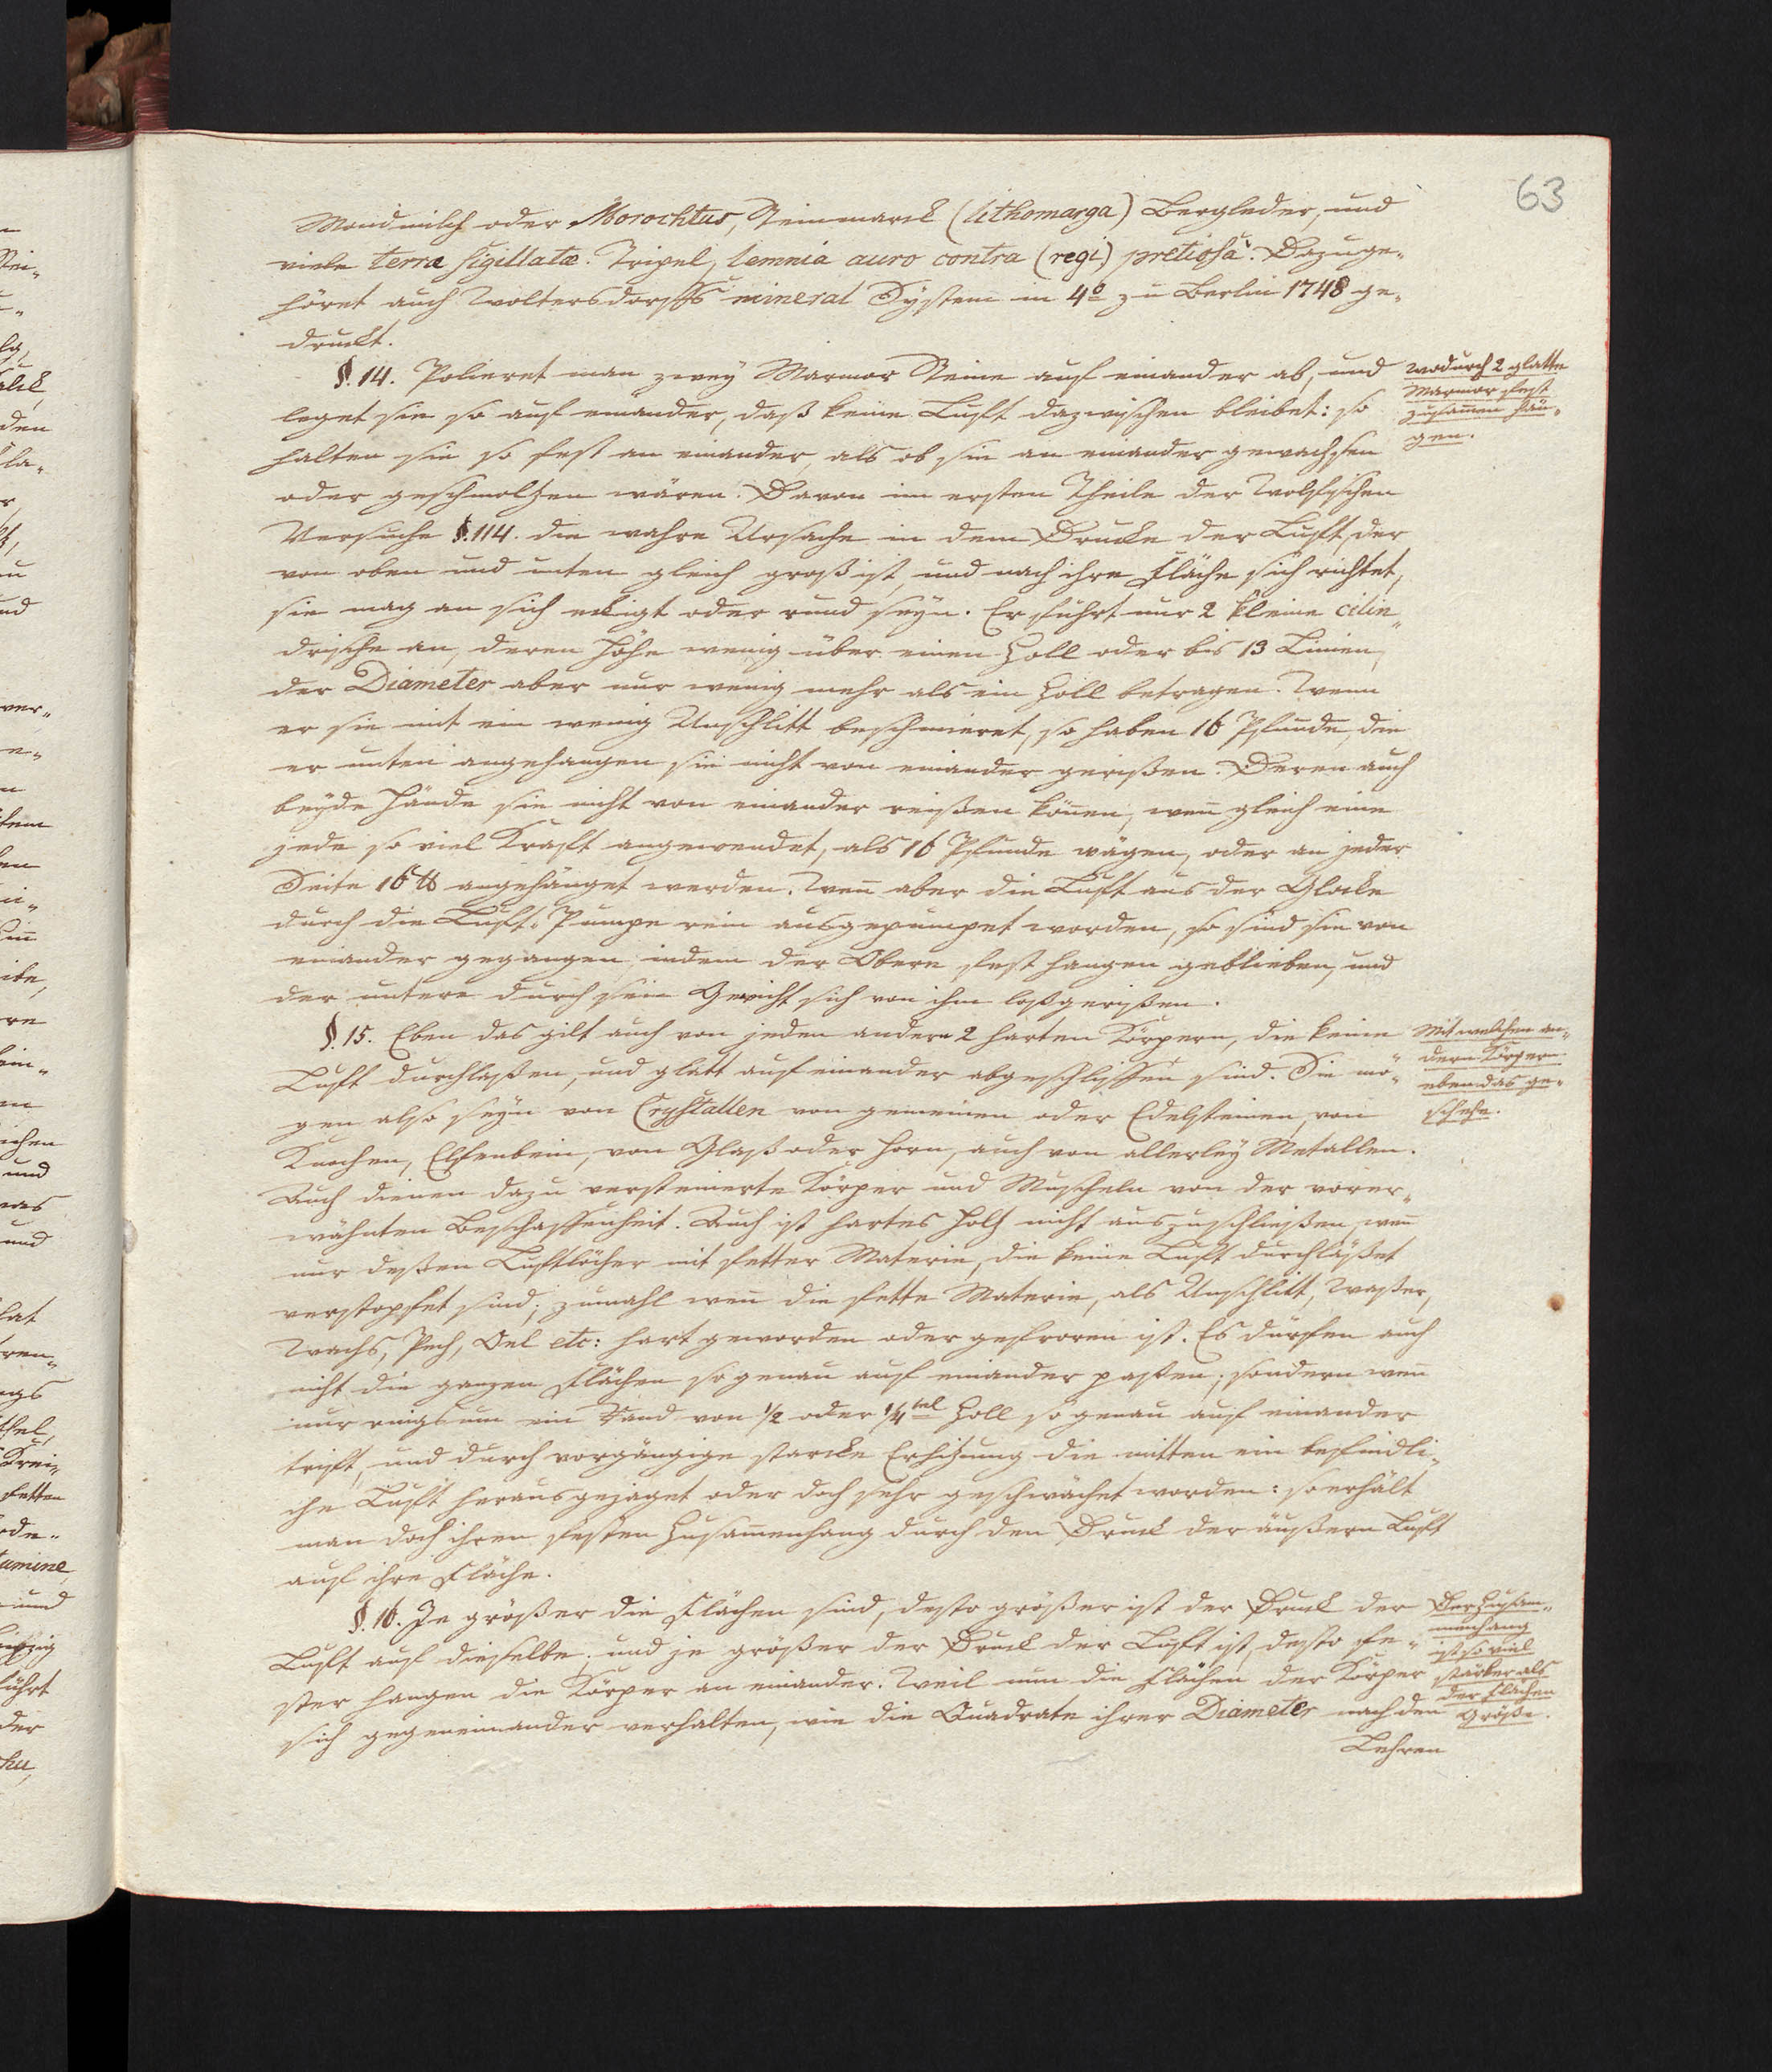 63
Mondmilch oder Morochtus, Steinmarck (lithomarga) Bergleder, und
viele terræ sigillatæ. Tripel, lemnia auro contra (regi) pretiosa. Dazuge-
höret auch Woltersdorffs mineral System in 4º zu Berlin 1748 ge-
druckt.
§. 14. Polieret man zwey Marmor Steine auf einander ab, und
leget sie so auf einander, daß keine Luft dazwischen bleibet: so
halten sie so fest an einander, als ob sie an einander gewachsen
oder geschmolzen wären. Davon im ersten Theile der Wolfischen
Versuche §. 114. die wahre Ursache in dem Drucke der Luft, der
von oben und unten gleich groß ist, und nach ihre Fläche sich richtet,
sie mag an sich eckigt oder rund seyn. Er führt nur 2 kleine cilin-
drische an, deren Höhe wenig über einen Zoll oder bis 13 Linien,
der Diameter aber nur wenig mehr als ein Zoll betragen. Wenn
er sie mit ein wenig Unschlitt beschmieret, so haben 16 Pfunde, die
er unten angehangen sie nicht von einander gerißen. Deren auch
beyde Hände sie nicht von einander reißen können, wenn gleich eine
jede so viel Kraft angewendet, als 16 Pfunde wägen, oder an jeder
Seite 16 ℔ angehänget werden. Wenn aber die Luft aus der Glocke
durch die Luft-Pumpe rein ausgepumpet worden, so sind sie von
einander gegangen, indem der Obere fest hangen geblieben, und
der untere durch sein Gewicht sich von ihm loßgerißen.
wodurch 2 glatte
Marmor fest
zusamen hän-
gen.
§. 15. Eben das gilt auch von jeden andern 2 harten Körpern, die keine
Luft durchlaßen, und glatt auf einander abgeschliffen sind. Sie mö-
gen also seyn von Crystallen von gemeinen oder Edelsteinen, von
Knochen, Elfenbein, von Glaß oder Horn, auch von allerley Metallen.
Auch dienen dazu versteinerte Körper und Muscheln von der vorer-
wähnten Beschaffenheit. Auch ist hartes Holz nicht auszuschließen, wenn
nur deßen Luftlöcher mit fetter Materie, die keine Luft durchläßet
verstopfet sind; zumahl wenn die fette Materie, als Unschlitt, Waßer,
Wachs, Pech, Oel etc: hart geworden oder gefroren ist. Es dürfen auch
nicht die ganzen Flächen so genau auf einander paßen; sondern wenn
nur ringsum ein Rand von 1/2 oder 1/4tel Zoll so genau auf einander
trift, und durch vorgängige starcke Erhitzung die mitten ein befindli-
che Luft herausgejaget oder doch sehr geschwächet worden: so erhält
man doch ihren festen Zusammenhang durch den Druck der äußern Luft
auf ihre Fläche.
Mit welchen an-
dern Körpern
eben das ge-
schehe.
§. 16. Je größer die Flächen sind, desto größer ist der Druck der
Luft auf dieselbe; und je größer der Druck der Luft ist, desto fe-
ster hangen die Körper an einander. Weil nun die Flächen der Körper
sich gegeneinander verhalten, wie die Quadrate ihrer Diameter nach den
Lehren
Der Zusam-
menhang
ist so viel
stärker als
der Flächen
Größe.